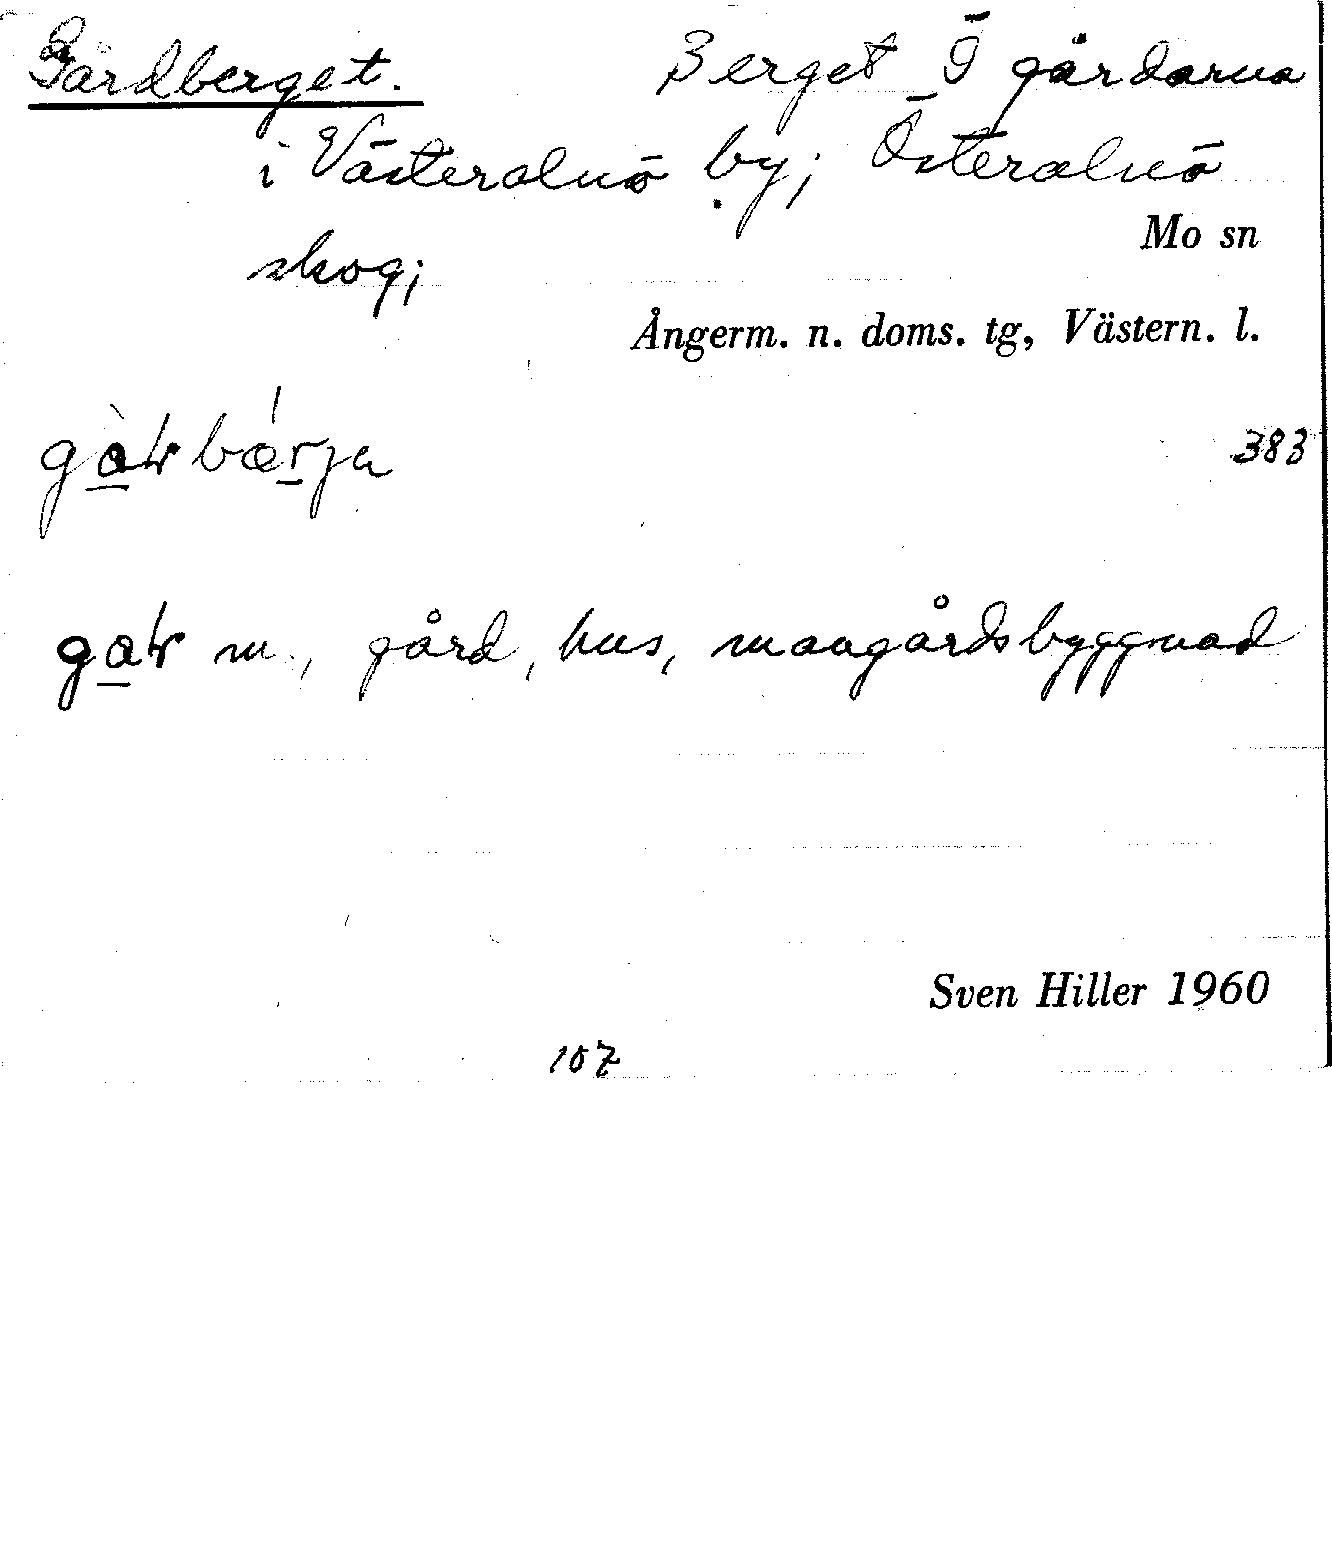 Gårdberget. Berget Ö gårdarna
i Västeralnö by; Österalnö
Mo sn
skog;
Ångerm. n. doms. tg, Västern. l.
383
m., gård, hus, mangårdsbyggnad
Sven Hiller 1960
107